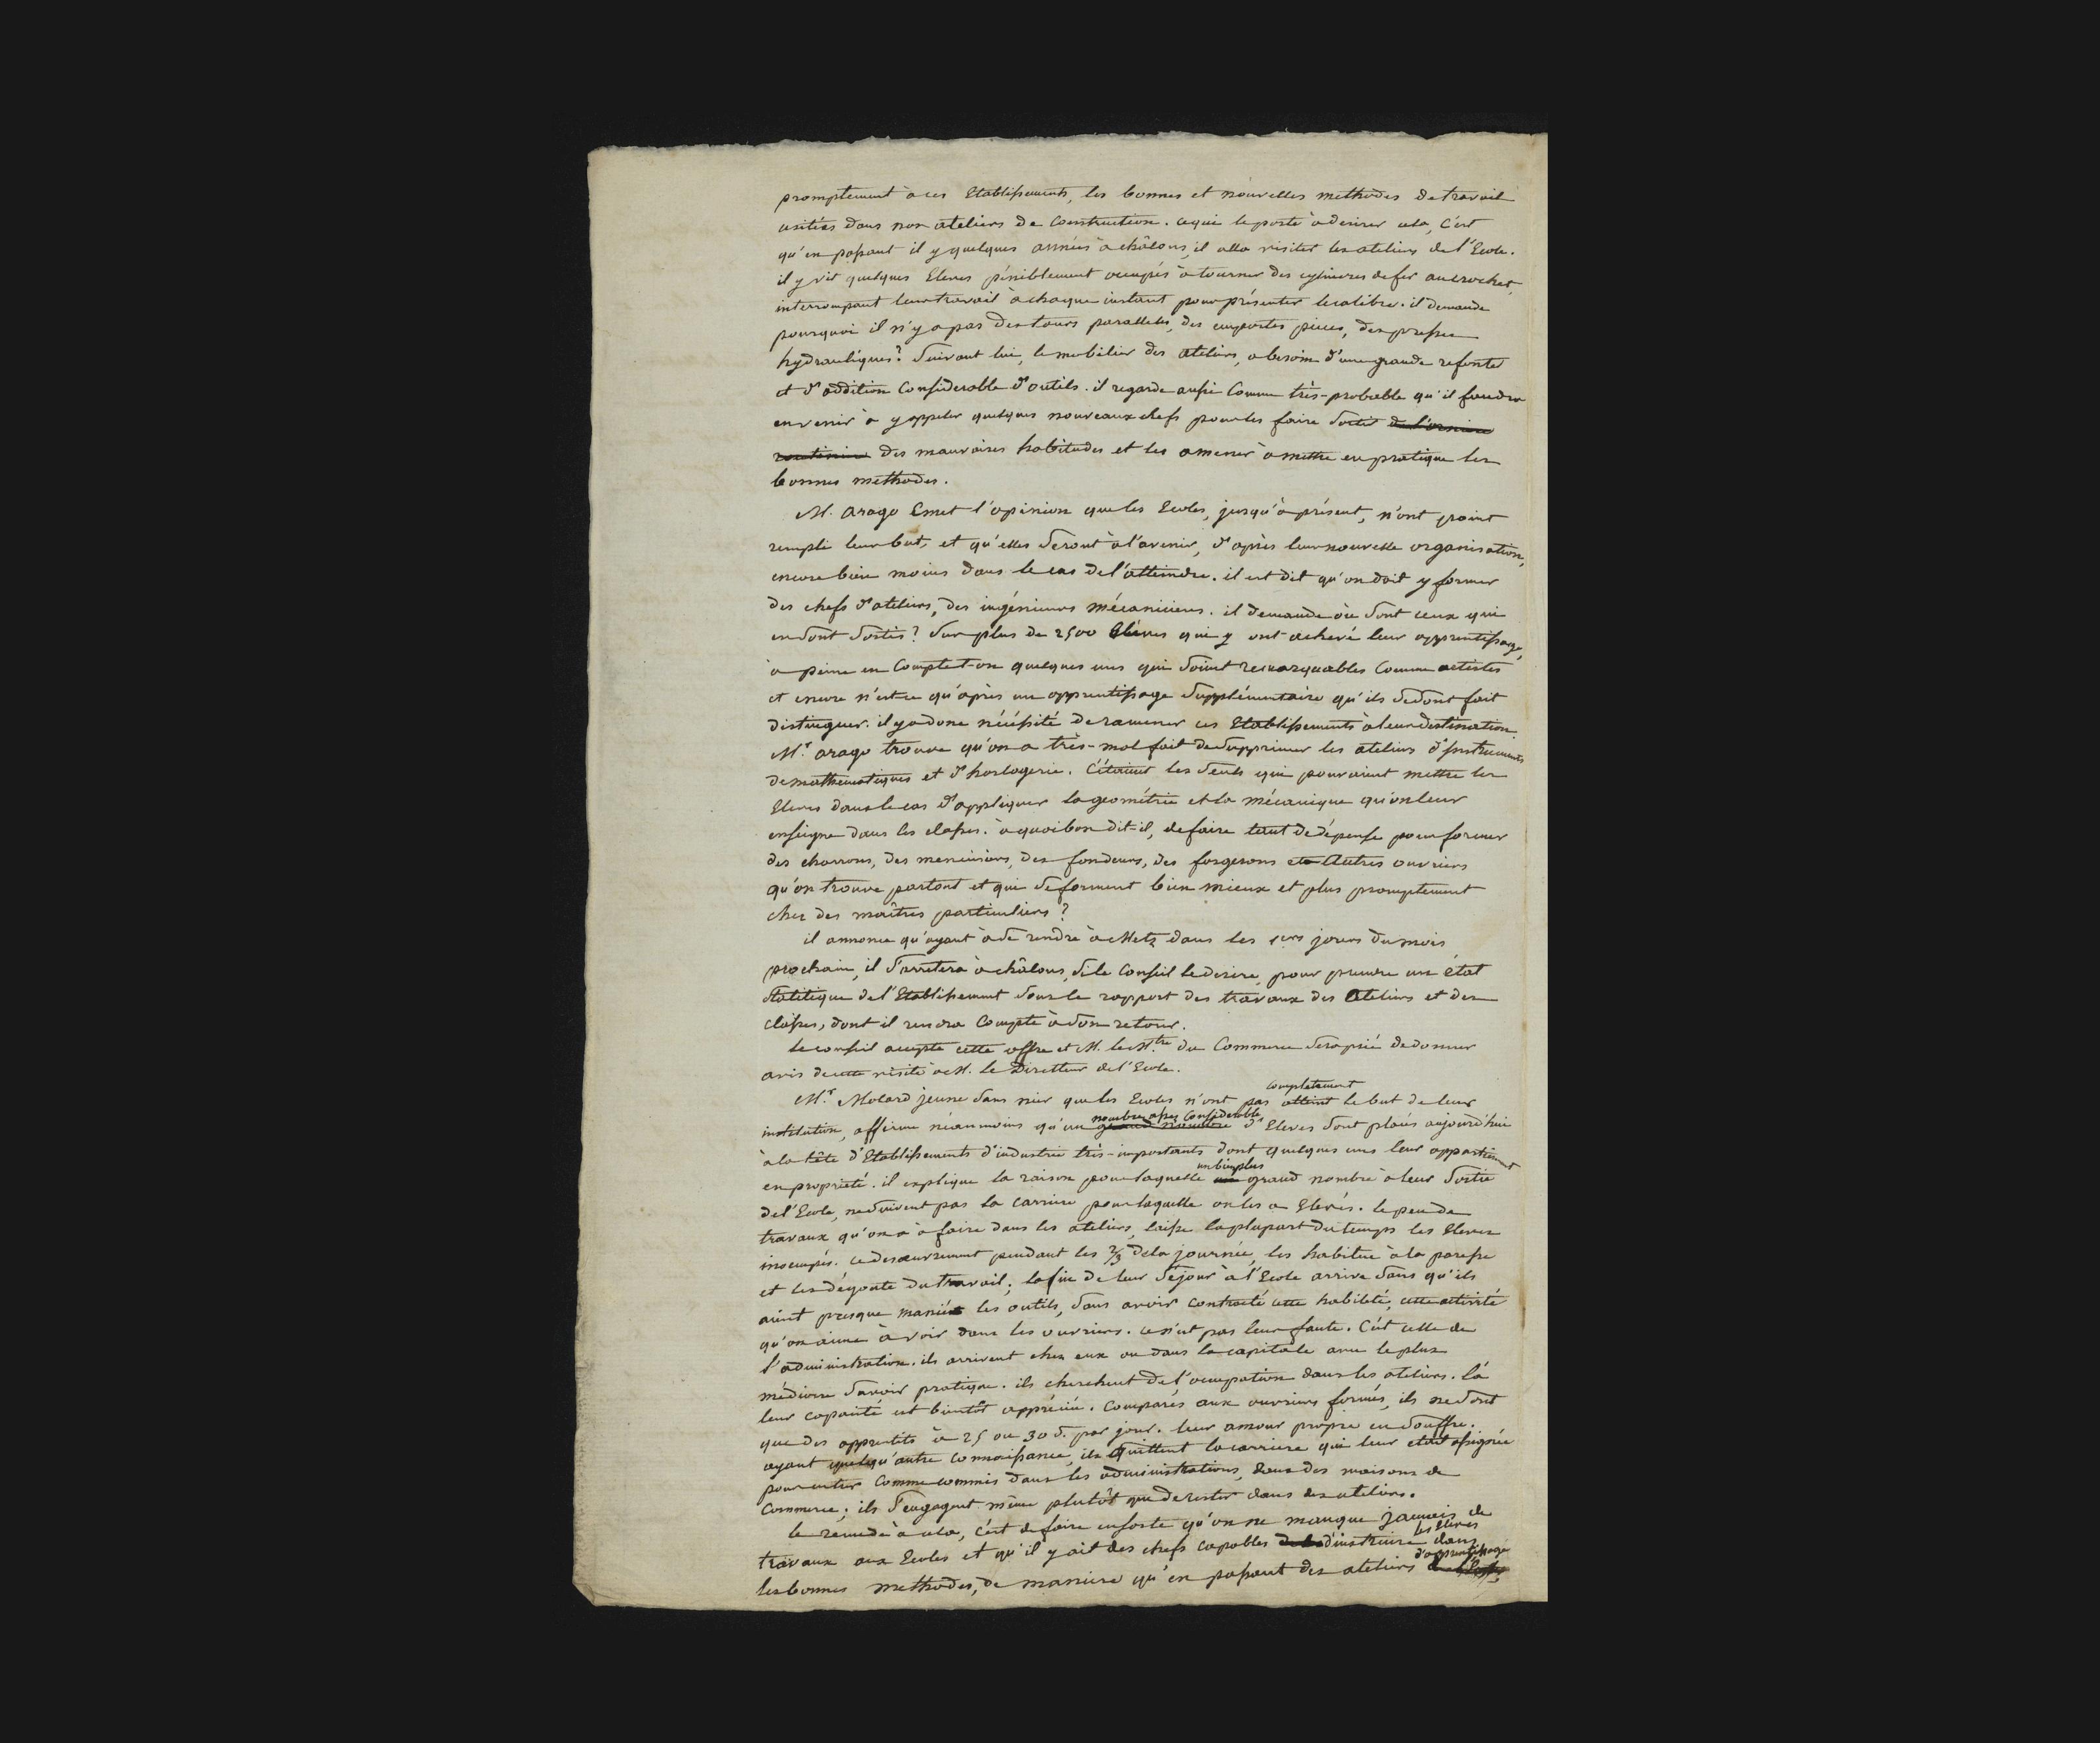 promptement à ces Etablissements, les bonnes et nouvelles methodes de travail
usitées dans nos ateliers de Construction. ce qui le porte à desirer cela, C'est
qu'en passant il y quelques années à châlons, il alla visiter les ateliers de l'Ecole.
il y vit quelques Eleves péniblement occupés à tourner des cylindres de fer au crochet,
interrompant leur travail à chaque instant pour présenter le calibre. il demande
pourquoi il n'y a pas des tours paralleles, des emportes pieces, des presses
hydrauliques? Suivant lui, le mobilier des ateliers, a besoin d'une grande refonte
et d'addition Considerable d'outils. il regarde aussi Comme très-probable qu'il faudra
en venir à y appeler quelques nouveaux chefs pour les faire sortir de l'ornière
routinière des mauvaises habitudes et les amener à mettre en pratique les
bonnes methodes.
M. arago Emet l'opinion que les Ecoles, jusqu'à présent, n'ont point
rempli leur but, et qu'elles seront à l'avenir, d'après leur nouvelle organisation,
encore bien moins dans le cas de l'atteindre. il est dit qu'on doit y former
des chefs d'ateliers, des ingénieurs mécaniciens. il demande où sont ceux qui
en sont sortis? Sur plus de 2500 Eleves qui y ont achevé leur apprentissage,
à peine en Compte-t-on quelques uns qui soient remarquables Comme artistes
et encore n'est-ce qu'après un apprentissage supplémentaire qu'ils se sont fait
distinguer. il y a donc nécéssité de ramener ces Etablissements à leur destination.
M.r arago trouve qu'on a très-mal fait de supprimer les ateliers d'Instruments
de mathematiques et d'horlogerie. C'étaient les seuls qui pouvaient mettre les
Eleves dans le cas d'appliquer la géométrie et la mécanique qu'on leur
enseigne dans les classes. à quoi bon dit-il, de faire tant de dépense pour former
des charrons, des menuisiers, des fondeurs, des forgerons et Autres ouvriers
qu'on trouve partout et qui se forment bien mieux et plus promptement
chez des maîtres particuliers?
il annonce qu'ayant à se rendre à Metz dans les 1ers jours du mois
prochain, il s'arretera à châlons, si le Conseil le desire, pour prendre un état
statitique de l'Etablissement sous le rapport des travaux des Ateliers et des
classes, dont il rendra Compte à son retour.
Le conseil accepte cette offre et M. le M.tre du Commerce sera prié de donner
avis de cette visite à M. le Directeur de l'Ecole.
completement
M.r Molard jeune sans nier que les Ecoles n'ont pas atteint le but de leur
nombre assez Considerable
institution, affirme néanmoins qu'un grand nombre d'Eleves sont placés aujourd'hui
à la tête d'Etablissements d'industrie très-importants dont quelques uns leur appartiennent
un bien plus
en propriété. il explique la raison pour laquelle un grand nombre à leur sortie
de l'Ecole, ne suivent pas la carriere pour laquelle on les a Elevés. le peu de
travaux qu'on a à faire dans les ateliers, laisse la plupart du temps les Eleves
inoccupés. ce desœuvrement pendant les 2/3 de la journée, les habitue à la paresse
et les dégoute du travail; la fin de leur séjour à l'Ecole arrive sans qu'ils
aient presque manié les outils, sans avoir contracté cette habileté, cette activité
qu'on aime à voir dans les ouvriers. ce n'est pas leur faute. C'est celle de
l'administration. ils arrivent chez eux ou dans la capitale avec le plus
médiocre savoir pratique. ils cherchent de l'occupation dans les ateliers. là
leur capacité est bientôt appréciée. Comparés aux ouvriers formés, ils ne sont
que des apprentits à 25 ou 30 s. par jour. leur amour propre en souffre.
ayant quelqu'autre connaissance, ils quittent la carriere qui leur etait assignée
pour entrer Comme commis dans les administrations, dans des maisons de
Commerce; ils s'engagent même plutôt que de rester dans des ateliers.
le remede à cela, c'est de faire ensorte qu'on ne manque jamais de
les Eleves
travaux aux Ecoles et qu'il y ait des chefs capables d'instruire dans
d'apprentissage
les bonnes methodes, de maniere qu'en passant des ateliers